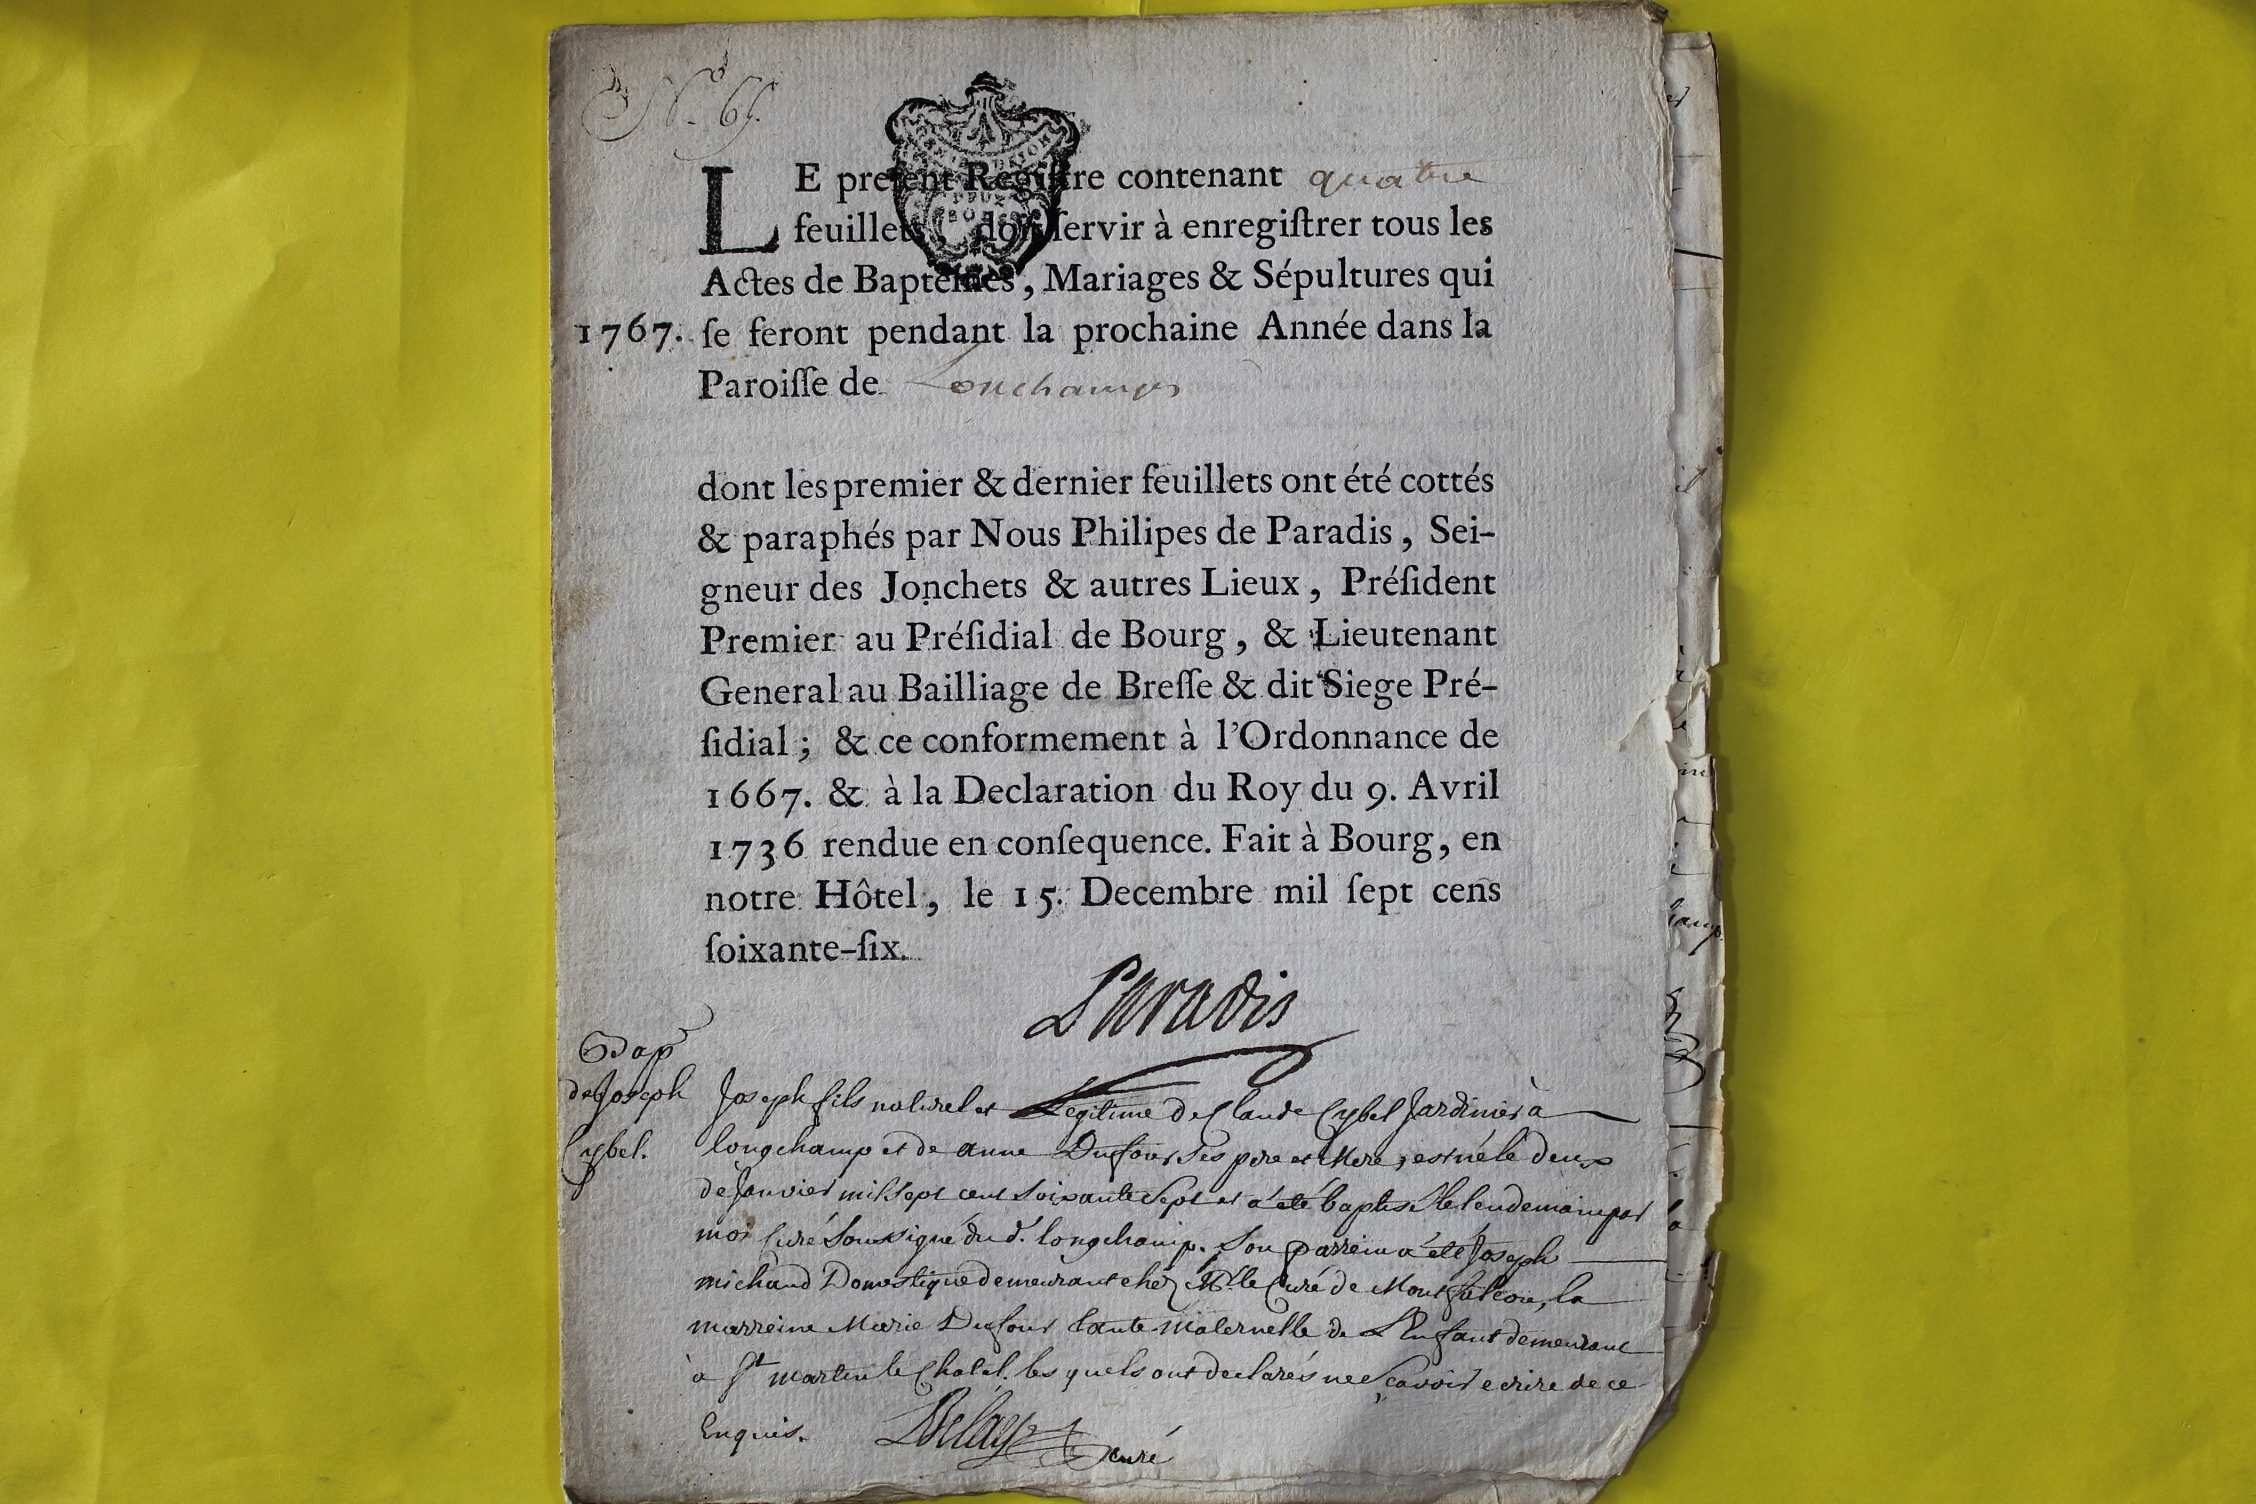 N.º 65.
LE preſent Regiſtre contenant quatre
feuillets, doit ſervir à enregiſtrer tous les
Actes de Baptêmes, Mariages & Sépultures qui
1767. ſe feront pendant la prochaine Année dans la
Paroiſſe de Lonchamps
dont les premier & dernier feuillets ont été cottés
& paraphés par Nous Philipes de Paradis, Sei-
gneur des Jonchets & autres Lieux, Préſident
Premier au Préſidial de Bourg, & Lieutenant
General au Bailliage de Breſſe & dit Siege Pré-
ſidial; & ce conformement à l'Ordonnance de
1667. & à la Declaration du Roy du 9. Avril
1736 rendue en conſequence. Fait à Bourg, en
notre Hôtel, le 15. Decembre mil ſept cens
ſoixante-ſix.
Paradis
Bap
de Joseph
Cybel.
Joseph fils naturel et Legitime de Claude Cybel Jardinier à
longchamp et de anne Dufour ses pere et Mere, est né le deux
de Janvier mil sept cent soixante sept et a été baptisé le lendemain par
moi Curé soussigné du d. longchamp. son parrein a été Joseph
michaud Domestique demeurant chéz Mr. le Curé de Montfalcon, la
marreine Marie Dufour tante maternelle de L'Enfant demeurant
à St martin le Chatel. les quels ont declarés ne sçavoir ecrire de ce
Enquis. Delay curé